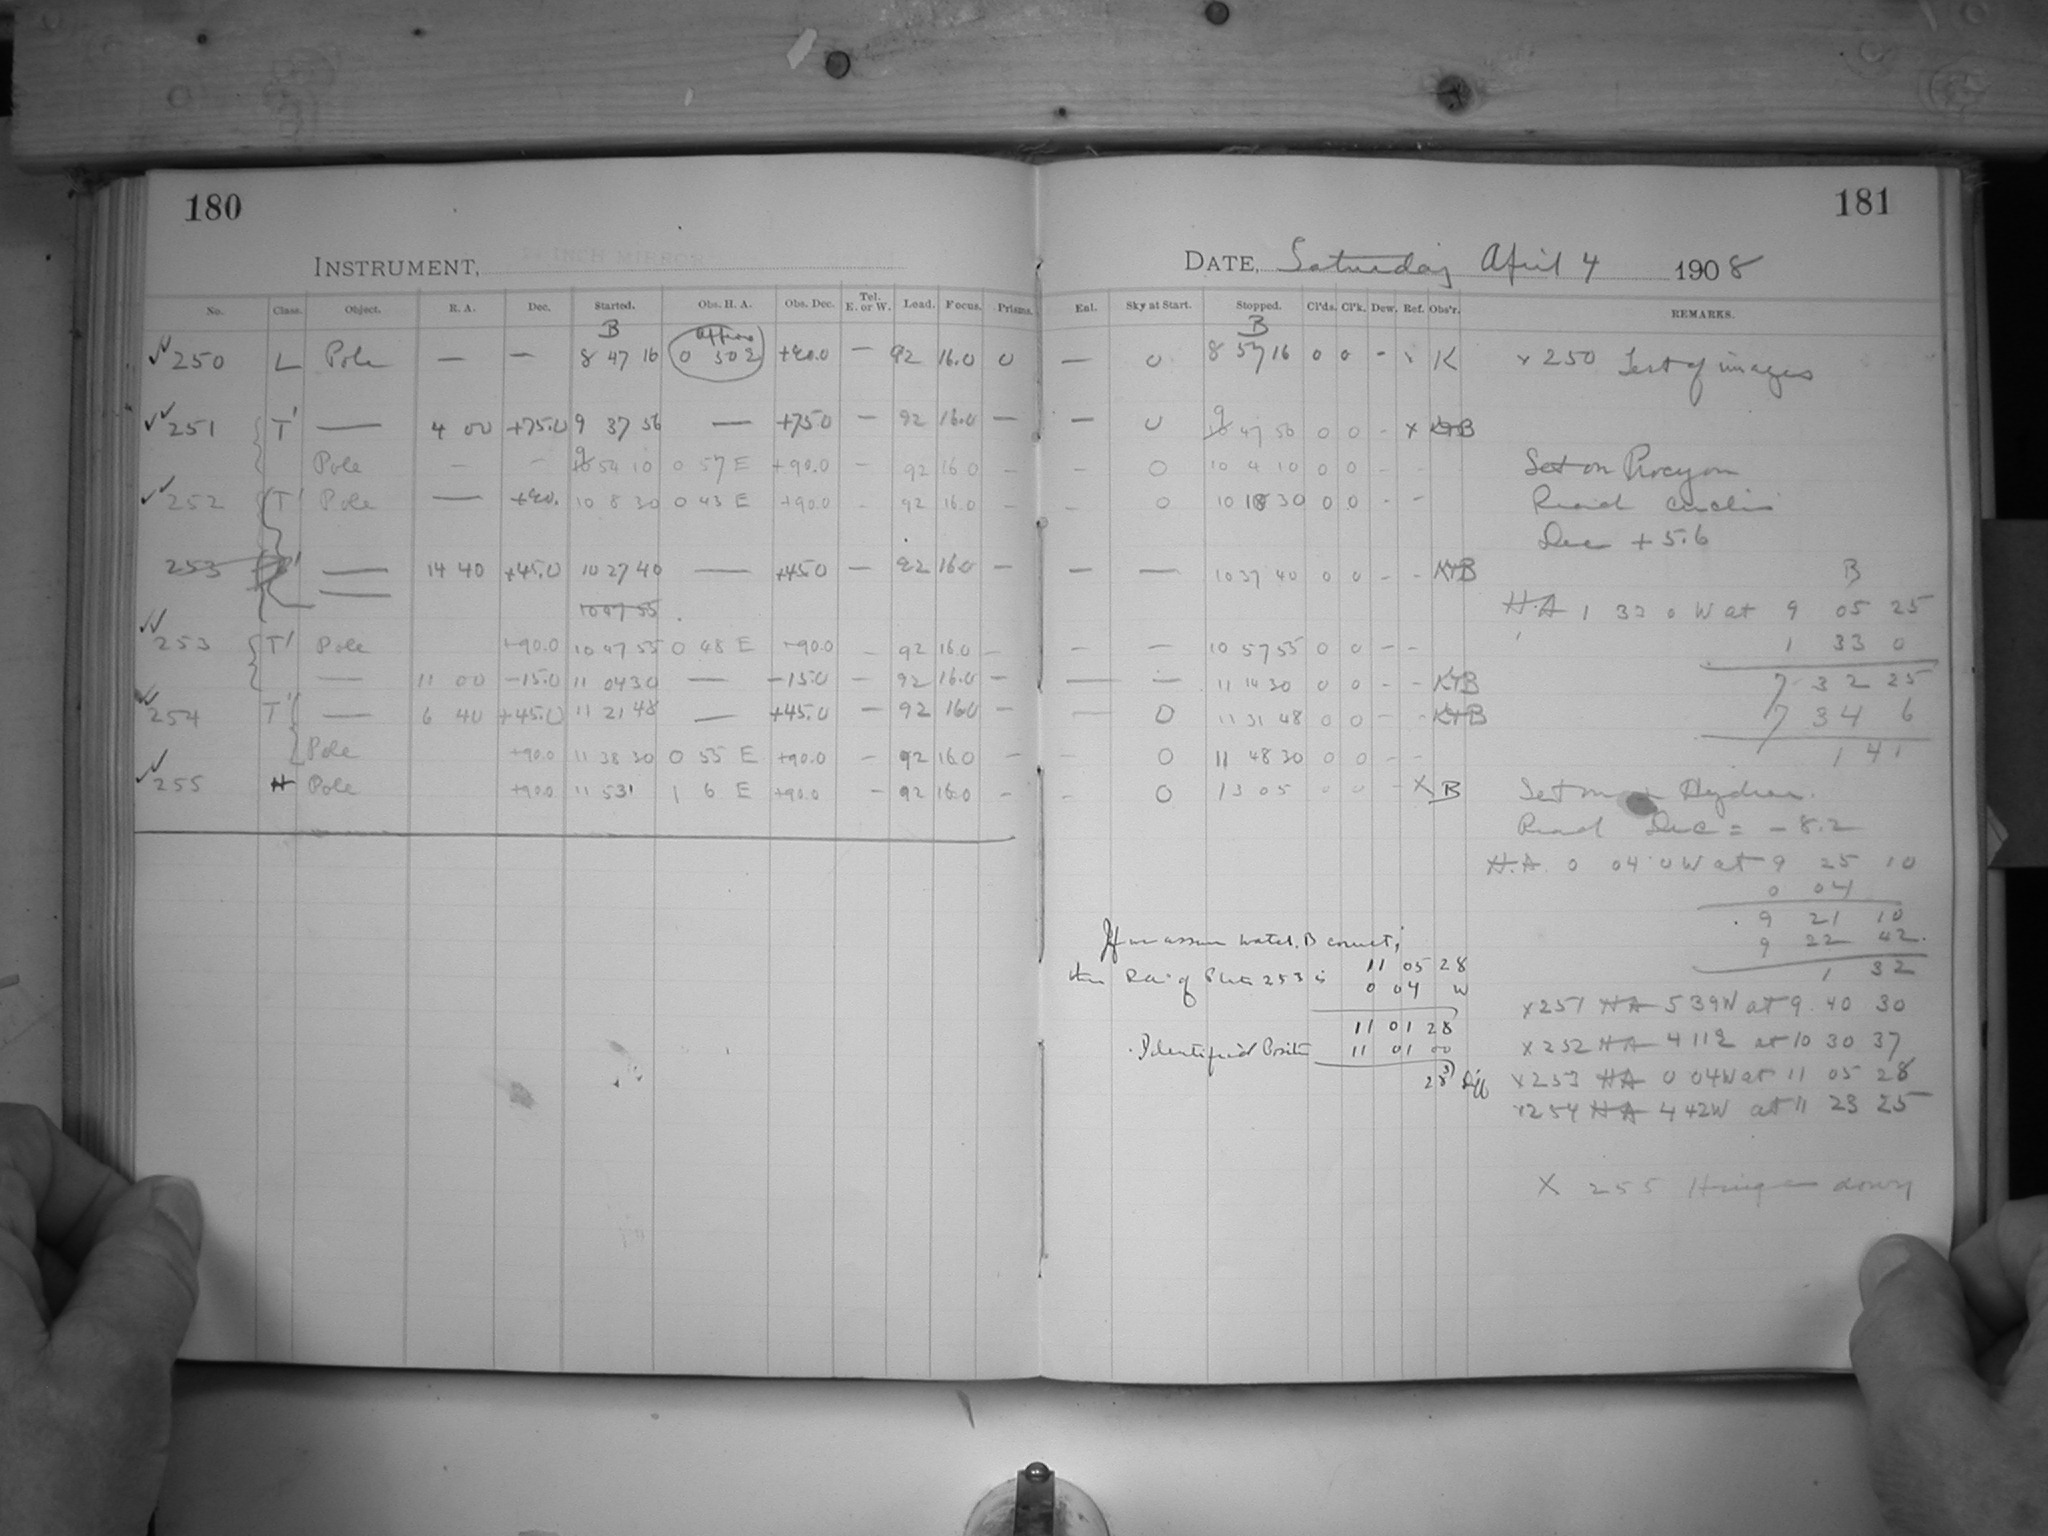 180
INSTRUMENT, 24 INCH MIRROR
No. Class. Object. R. A. Dec. Started. Obs. H. A. Obs. Dec. Tel. E. or W. Load. Focus. Prisms.
B
250 L Pole — — 8 47 16 0 50 2 +90.0 — 92 16.0 0
251 T' — 4 00 +75.0 9 37 56 — +75.0 — 92 16.0 —
Pole — — 9 54 10 0 57 E +90.0 — 92 16.0 —
252 T' Pole — +90. 10 8 30 0 43 E +90.0 - 92 16.0 —
253 — 14 40 +45.0 10 27 40 — +45.0 — 92 16.0 —
10 07 55
253 T' Pole +90.0 10 47 55 0 48 E +90.0 — 92 16.0 —
— 11 00 -15.0 11 04 30 — -15.0 — 92 16.0 —
254 T' — 6 40 +45.0 11 21 48 — +45.0 — 92 16.0 —
Pole +90.0 11 38 30 0 55 E +90.0 — 92 16.0 —
255 H Pole +90.0 11 53 1 1 6 E +90.0 — 92 16.0 —
181
DATE, Saturday April 4 1908
Enl. Sky at Start. Stopped. Cl'ds. Cl'k. Dew. Ref. Obs'r. REMARKS.
B
— 0 8 57 16 0 0 - K x 250 Test of images
— 0 9 47 56 0 0 - x K+B
- 0 10 4 10 0 0 - - Set on Procyon
- 0 10 18 30 0 0 - - Read circles
Dec + 5.6
— — 10 37 40 0 0 - - K+B B
H.A 1 33 0 W at 9 05 25
1 33 0
- — 10 57 55 0 0 - -
— - 11 14 30 0 0 - - K+B 7 32 25
— 0 11 31 48 0 0 - - K+B 7 34 6
- 0 11 48 30 0 0 - - 1 41
- 0 13 05 0 0 - X B Set on α Hydrae.
Read Dec = -8.2
H.A. 0 04.0 W at 9 25 10
0 04
9 21 10
9 22 42
1 32
If we assume watch B correct,
then R.A. of Plate 253 is 11 05 28
0 04 W
11 01 28
Identified Position 11 01 00
28 Diff
x 251 HA 5 39W at 9 40 30
x 252 HA 4 11 E at 10 30 37
x 253 HA 0 04W at 11 05 28
x 254 HA 4 42W at 11 23 25
X 255 down